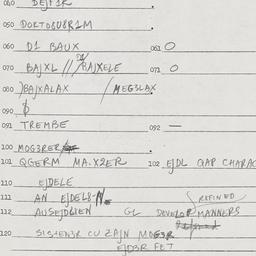 040 DEJF1R
050 DOKTOBUSR1M
060 D1 BAUX 061 O
070 BAJXL /// BAJXELE 071 O
080 )BAJXALAX / MEG3LAX
090
091 TREMBE 092 —
100 MOG3RER
101 QGERM MA.X2ER 102 EJDL GAP CHARAC
110 EJDELE
111 AN EJDEL8- (REFINED
112 AUSEJDLIEN GL DEVELOP MANNERS
120 CU ZAJN MOG3R
EJD3R FET